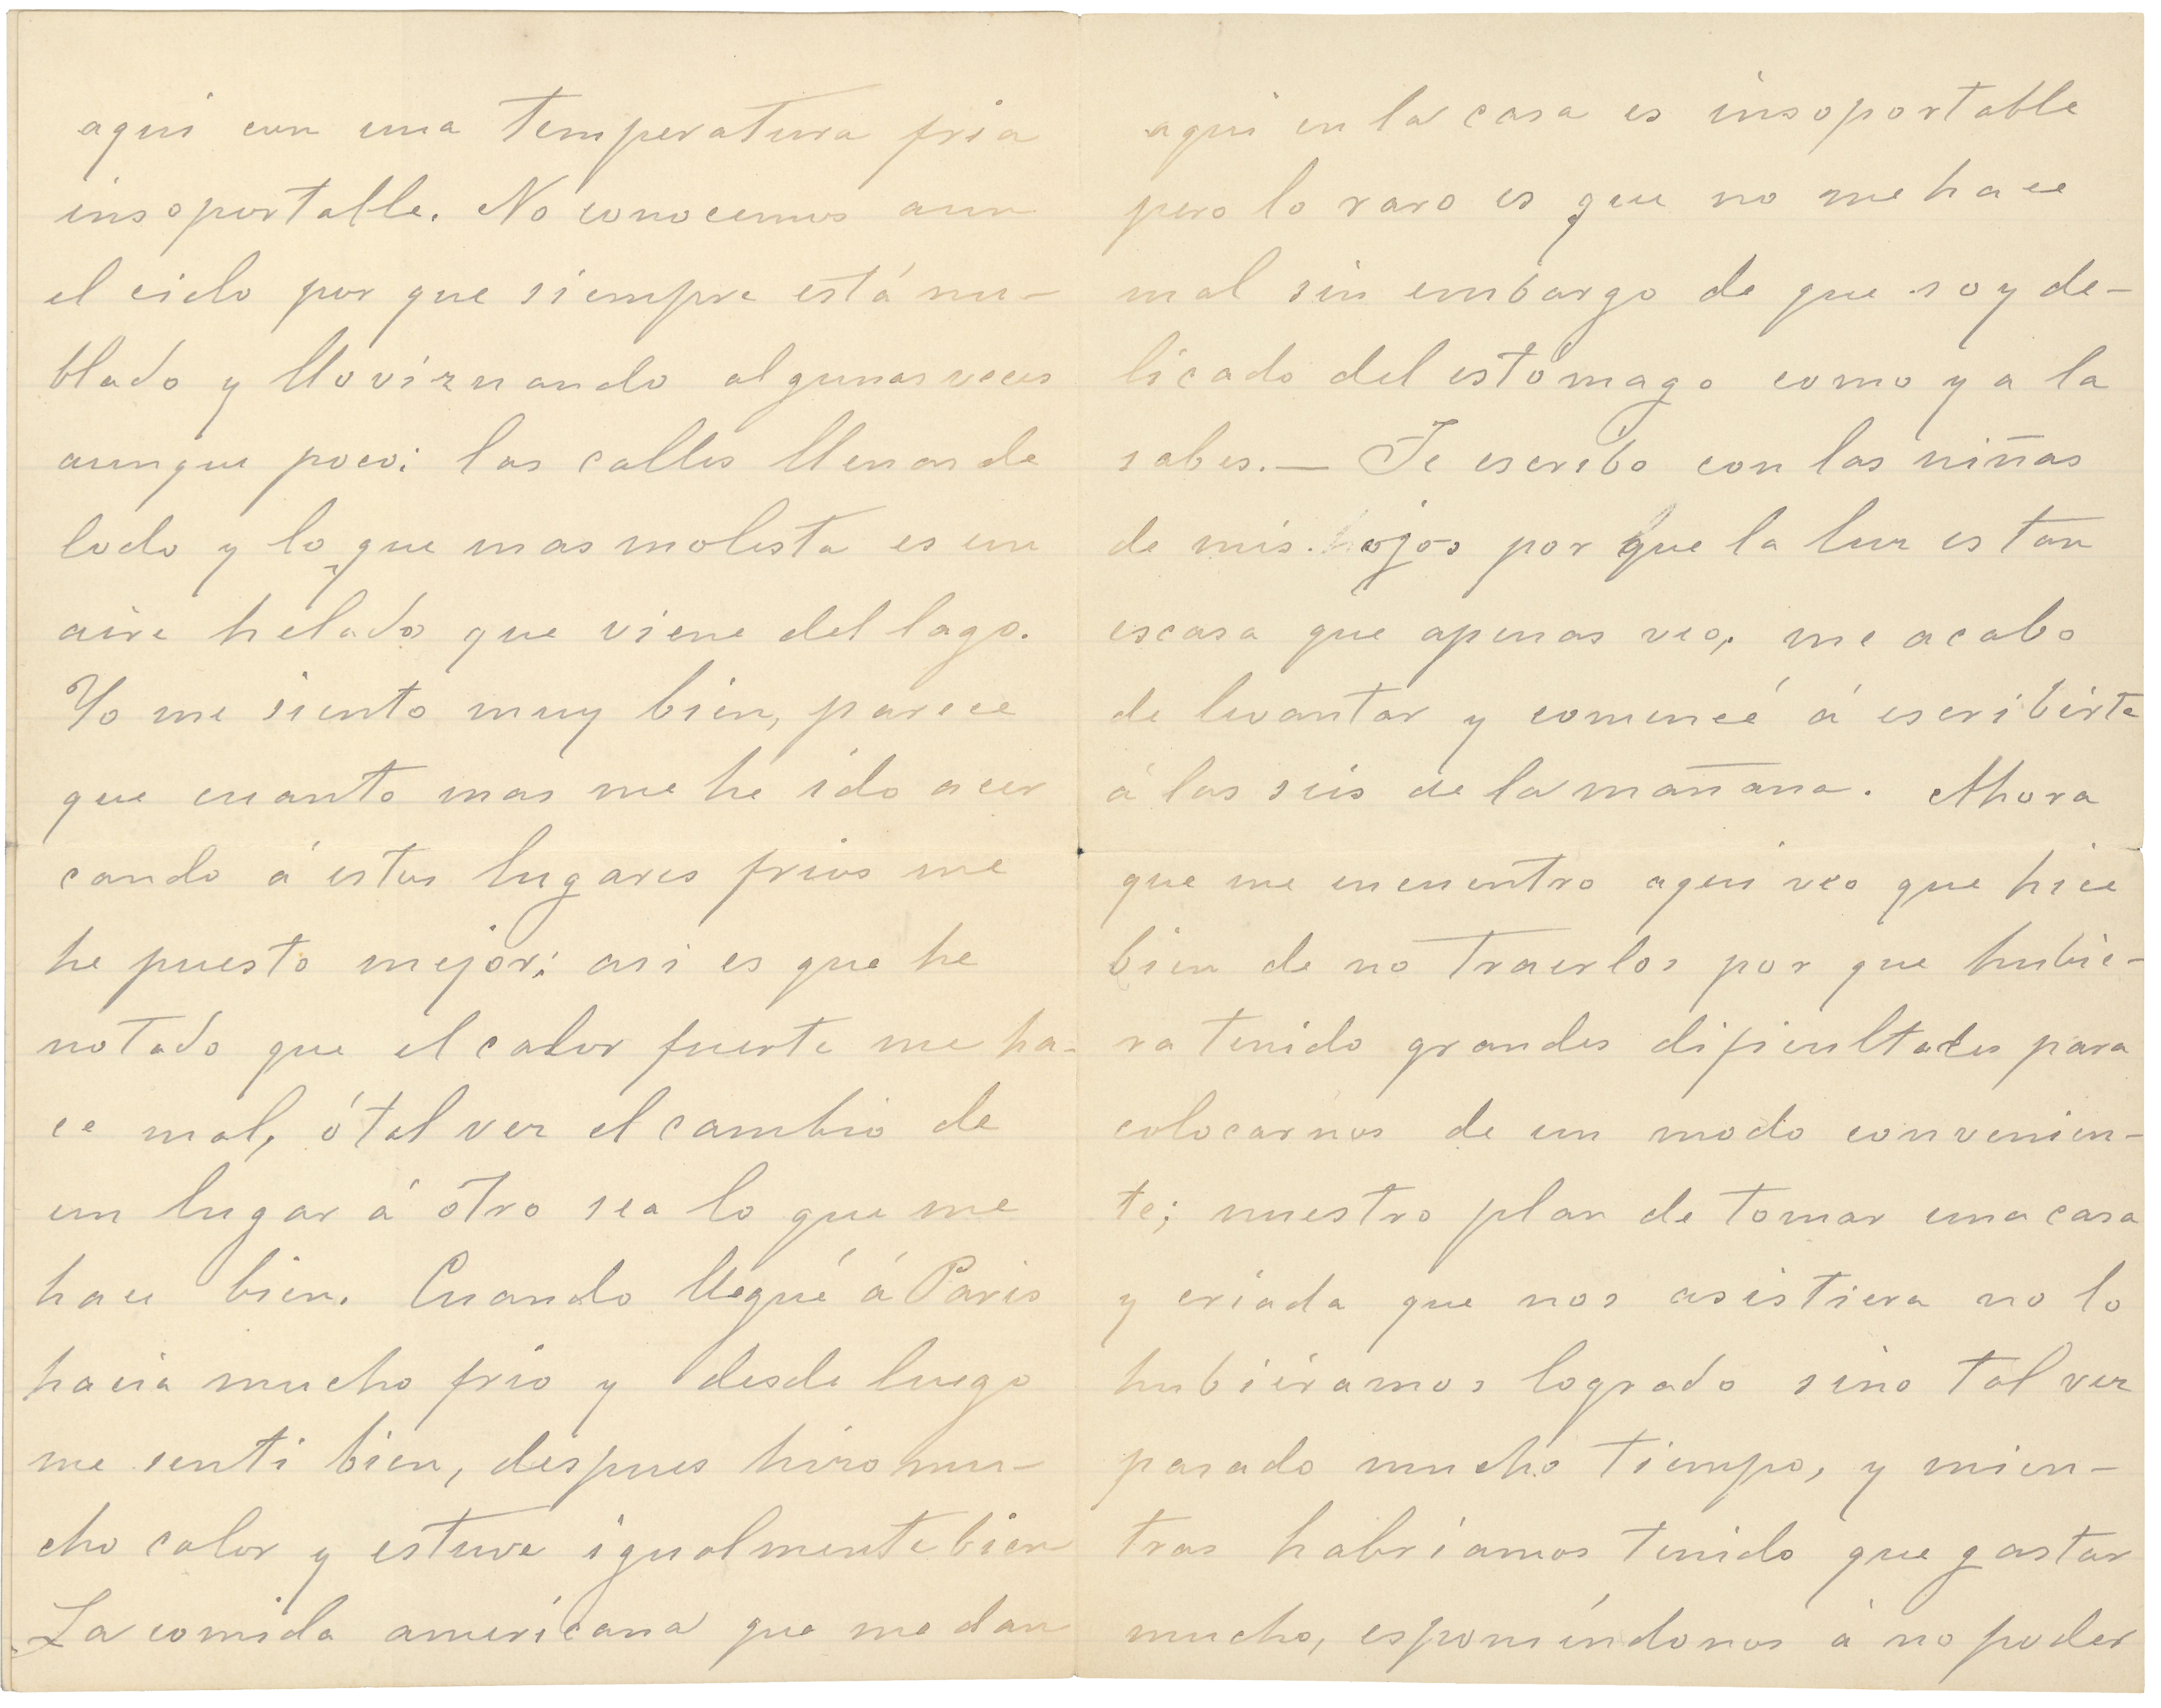 aqui con una temperatura fria
insoportable. No conocemos aun
el cielo por que siempre está nu-
blado y lloviznando algunas veces
aunque poco; las calles llenas de
lodo y lo que mas molesta es un
aire helado que viene del lago.
Yo me siento muy bien, parece
que cuanto mas me he ido acer
cando á estos lugares frios me
he puesto mejor; asi es que he
notado que el calor fuerte me ha-
ce mal, ó tal vez el cambio de
un lugar á otro sea lo que me
hace bien. Cuando llegué á Paris
hacia mucho frio y desde luego
me senti bien, despues hizo mu-
cho calor y estuve igualmente bien
La comida americana que me dan
aqui en la casa es insoportable
pero lo raro es que no me hace
mal sin embargo de que soy de-
licado del estómago como ya la
sabes. — Te escribo con las niñas
de mis ojos por que la luz es tan
escasa que apenas veo, me acabo
de levantar y comencé á escribirte
á las seis de la mañana. Ahora
que me encuentro aqui veo que hice
bien de no traerlos por que hubie-
ra tenido grandes dificultades para
colocarnos de un modo convenien-
te; nuestro plan de tomar una casa
y criada que nos asistiera no lo
hubiéramos logrado sino tal vez
pasado mucho tiempo, y mien-
tras habriamos tenido que gastar
mucho, esponiéndonos á no poder